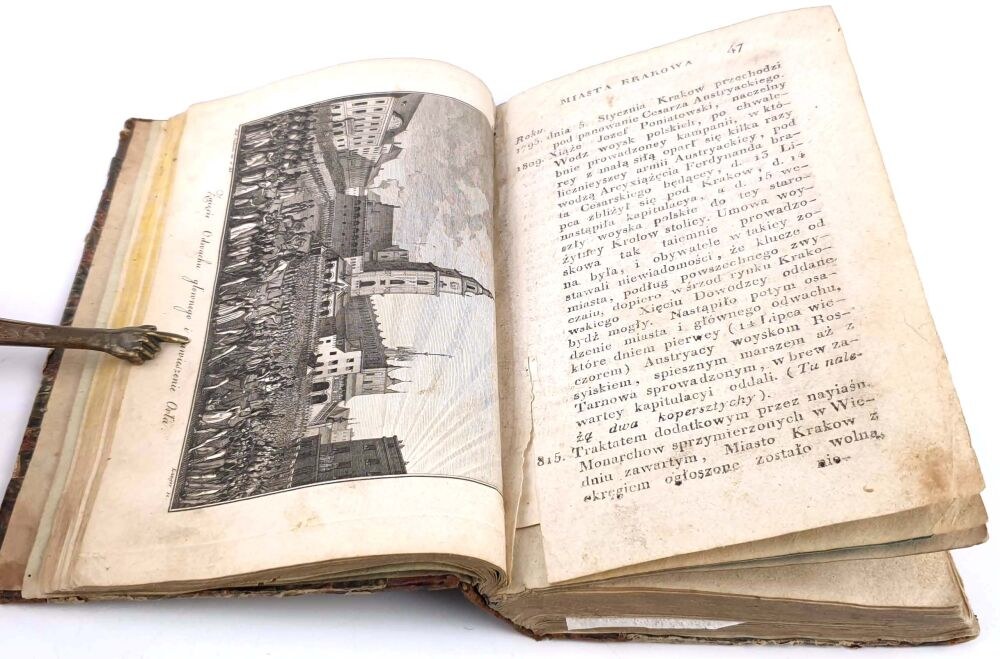 47
MIASTA KRAKOWA
Roku. dnia 5. Stycznia Krakow przechodzi
1795. pod panowanie Cesarza Austryackiego.
1809. Xiąże Jozef Poniatowski, naczelny
Wodz woysk polskich, po chwale-
bnie prowadzoney kampanii, w któ-
rey z małą siłą oparł się kilka razy
licznieyszey armii Austryackiey, pod
wodzą Arcyxiążęcia Ferdynanda bra-
ta Cesarskiego będącey, d. 13 Li-
pca zbliżył się pod Krakow, d. 14
nastąpiła kapitulacya, a d. 15 we-
szły woyska polskie do tey staro-
żytney Krolow stolicy. Umowa woy-
skowa tak taiemnie prowadzo-
na była, i obywatele w takiey zo-
stawali niewiadomości, że klucze od
miasta, podług powszechnego zwy-
czaiu, dopiero w srzod rynku Krako-
wskiego Xięciu Dowodzcy oddane
bydź mogły. Nastąpiło potym osa-
dzenie miasta i głównego odwachu,
które dniem pierwey (14 Lipca wie-
czorem) Austryacy woyskom Ros-
syiskiem, spiesznym marszem aż z
Tarnowa sprowadzonym, w brew za-
wartey kapitulacyi oddali. (Tu nale-
żą dwa kopersztychy).
815. Traktatem dodatkowym przez nayiaśn.
Monarchow sprzymierzonych w Wie-
dniu zawartym, Miasto Krakow z
okręgiem ogłoszone zostało nie-
wolną,
Zajęcie Odwachu głownego i zawieszenie Orła.